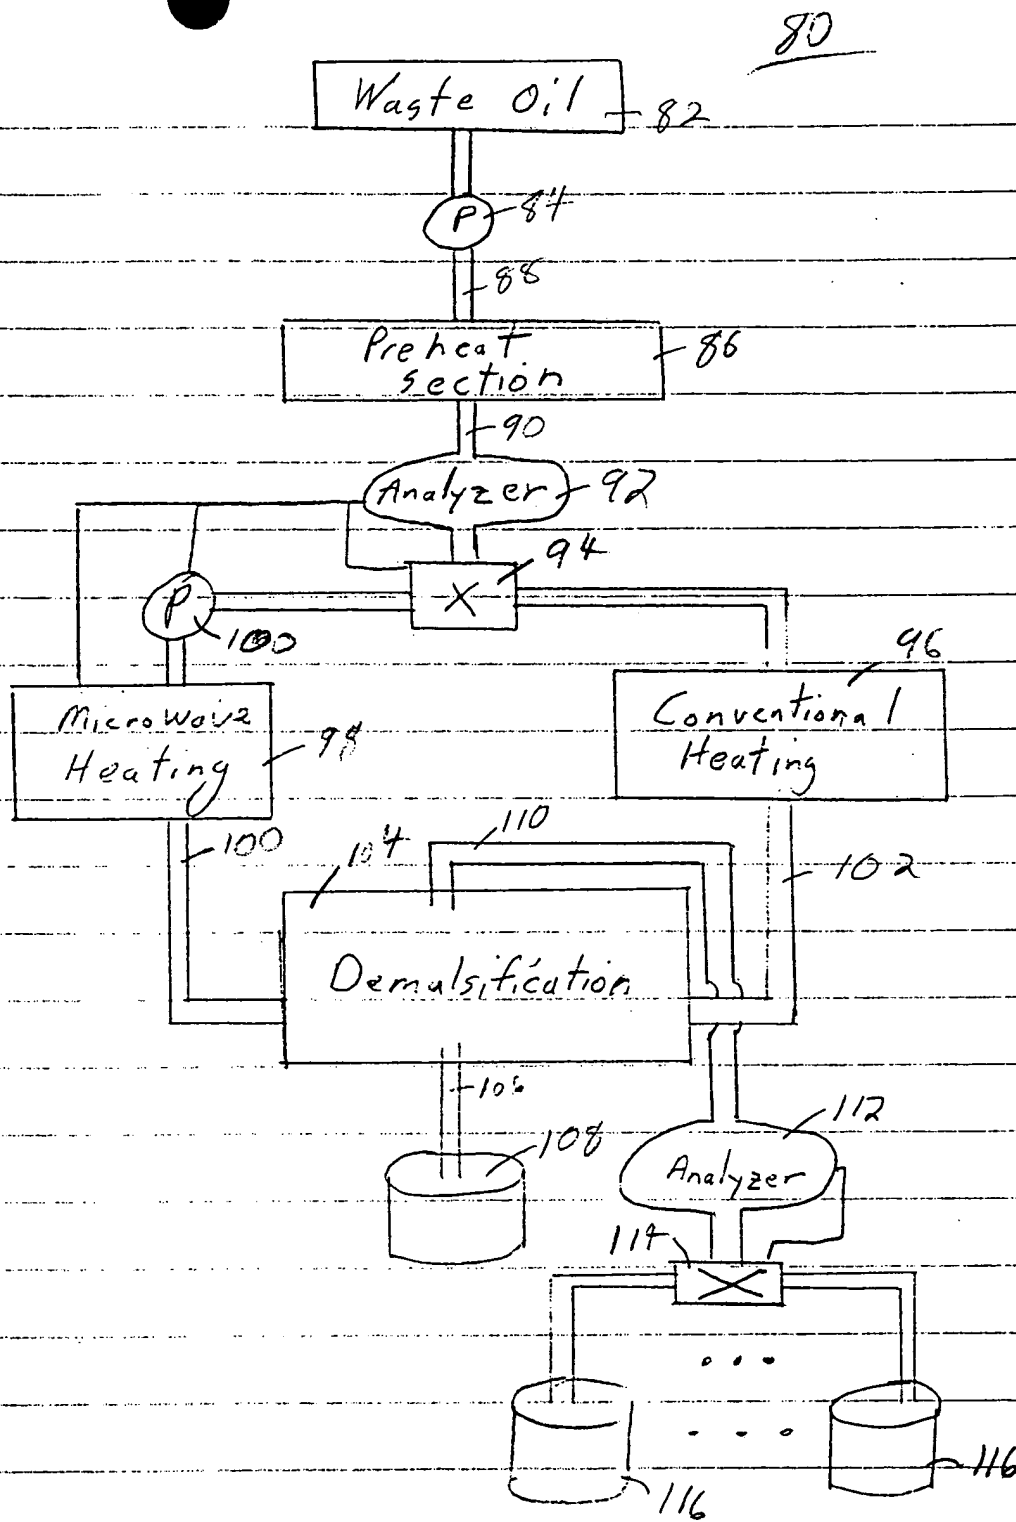 80
Waste Oil
82
P
84
88
Preheat
section
86
90
Analyzer
92
94
X
P
100
96
Microwave
Heating
98
Conventional
Heating
100
104
110
102
Demulsification
106
108
112
Analyzer
114
X
116
116